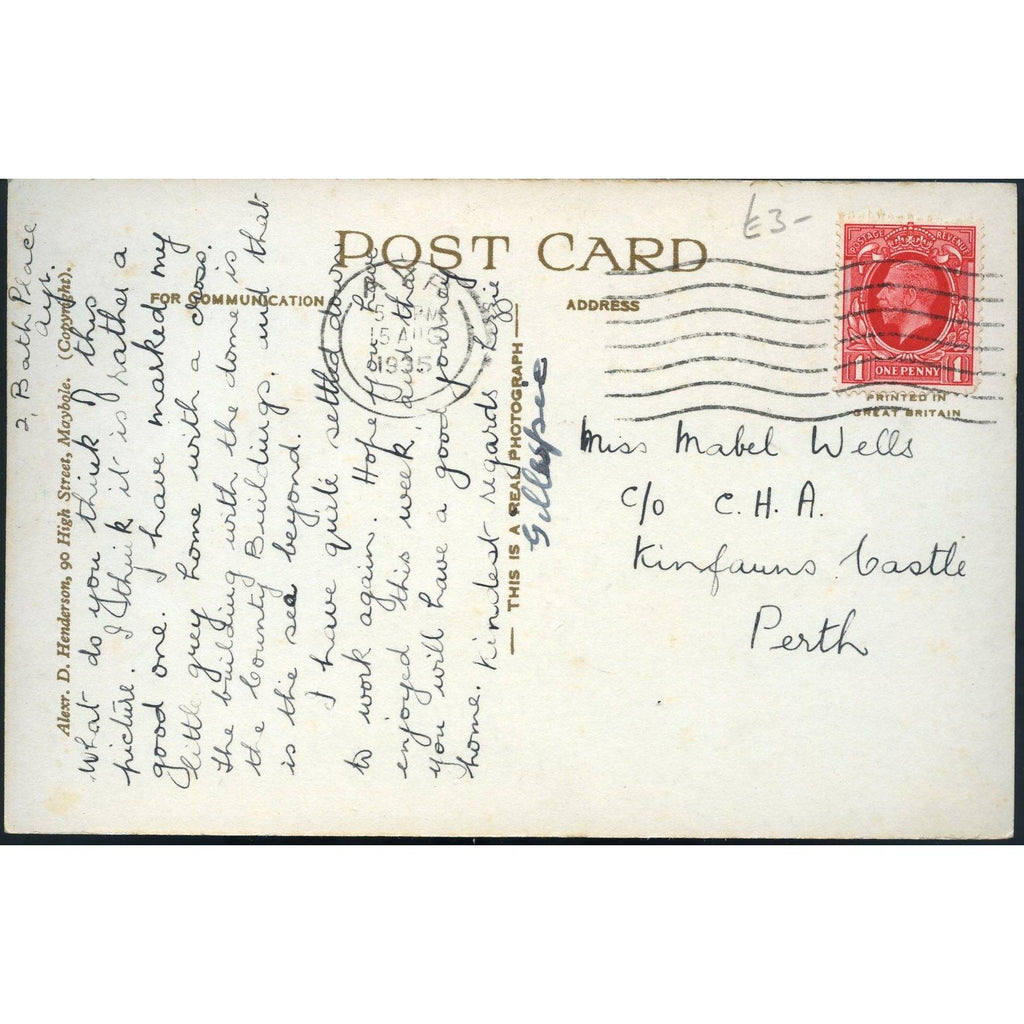 POST CARD
FOR COMMUNICATION
ADDRESS
£3-
POSTAGE REVENUE
1 ONE PENNY 1
PRINTED IN
GREAT BRITAIN
AYR
15 AUG
1935
2, Bath Place
Ayr.
Alexr. D. Henderson, 90 High Street, Maybole. (Copyright).
What do you think of this
picture. I think it is rather a
good one. I have marked my
little grey home with a cross.
The building with the dome is
the County Buildings. and that
is the sea beyond.
I have quite settled down
to work again. Hope you have
enjoyed this week, and that
you will have a good journey
home. Kindest regards Lizzie
Gillespie
THIS IS A REAL PHOTOGRAPH
Miss Mabel Wells
c/o C.H.A.
Kinfauns Castle
Perth